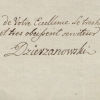 de Votre Excellence le tres h
et tres obeissant serviteur
Dzierzanowski